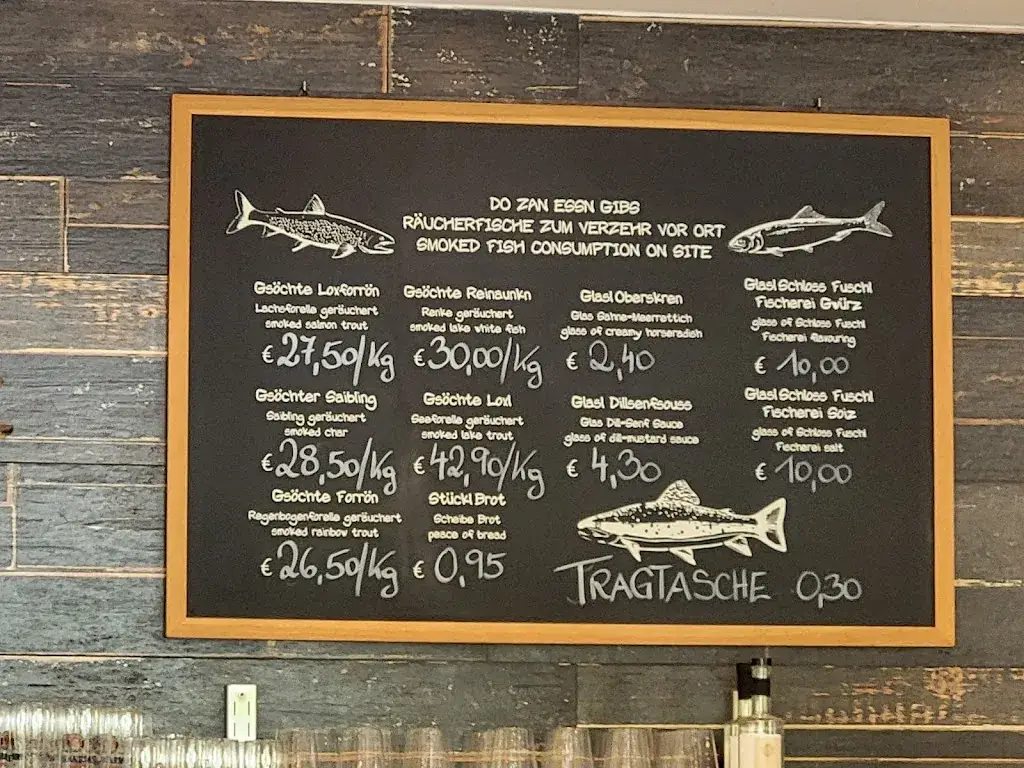 DO ZAN ESSN GIBS
RÄUCHERFISCHE ZUM VERZEHR VOR ORT
SMOKED FISH CONSUMPTION ON SITE
Gsöchte Loxforrön
Lachsforelle geräuchert
smoked salmon trout
€ 27,50/Kg
Gsöchter Saibling
Saibling geräuchert
smoked char
€ 28,50/Kg
Gsöchte Forrön
Regenbogenforelle geräuchert
smoked rainbow trout
€ 26,50/Kg
Gsöchte Reinaunkn
Renke geräuchert
smoked lake white fish
€ 30,00/Kg
Gsöchte Loxl
Seeforelle geräuchert
smoked lake trout
€ 42,90/Kg
Stückl Brot
Scheibe Brot
peace of bread
€ 0,95
Glasl Oberskren
Glas Sahne-Meerrettich
glass of creamy horseradish
€ 2,40
Glasl Dillsenfsouss
Glas Dill-Senf Sauce
glass of dill-mustard sauce
€ 4,30
Glasl Schloss Fuschl
Fischerei Gwürz
glass of Schloss Fuschl
Fischerei flavouring
€ 10,00
Glasl Schloss Fuschl
Fischerei Soiz
glass of Schloss Fuschl
Fischerei salt
€ 10,00
TRAGTASCHE 0,30